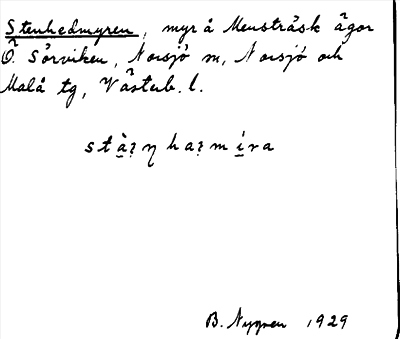 Stenhedmyren, myr å Mensträsk ägor
Ö. Sörviken, Norsjö sn, Norsjö och
Malå tg, Västerb. l.
B. Nygren 1929